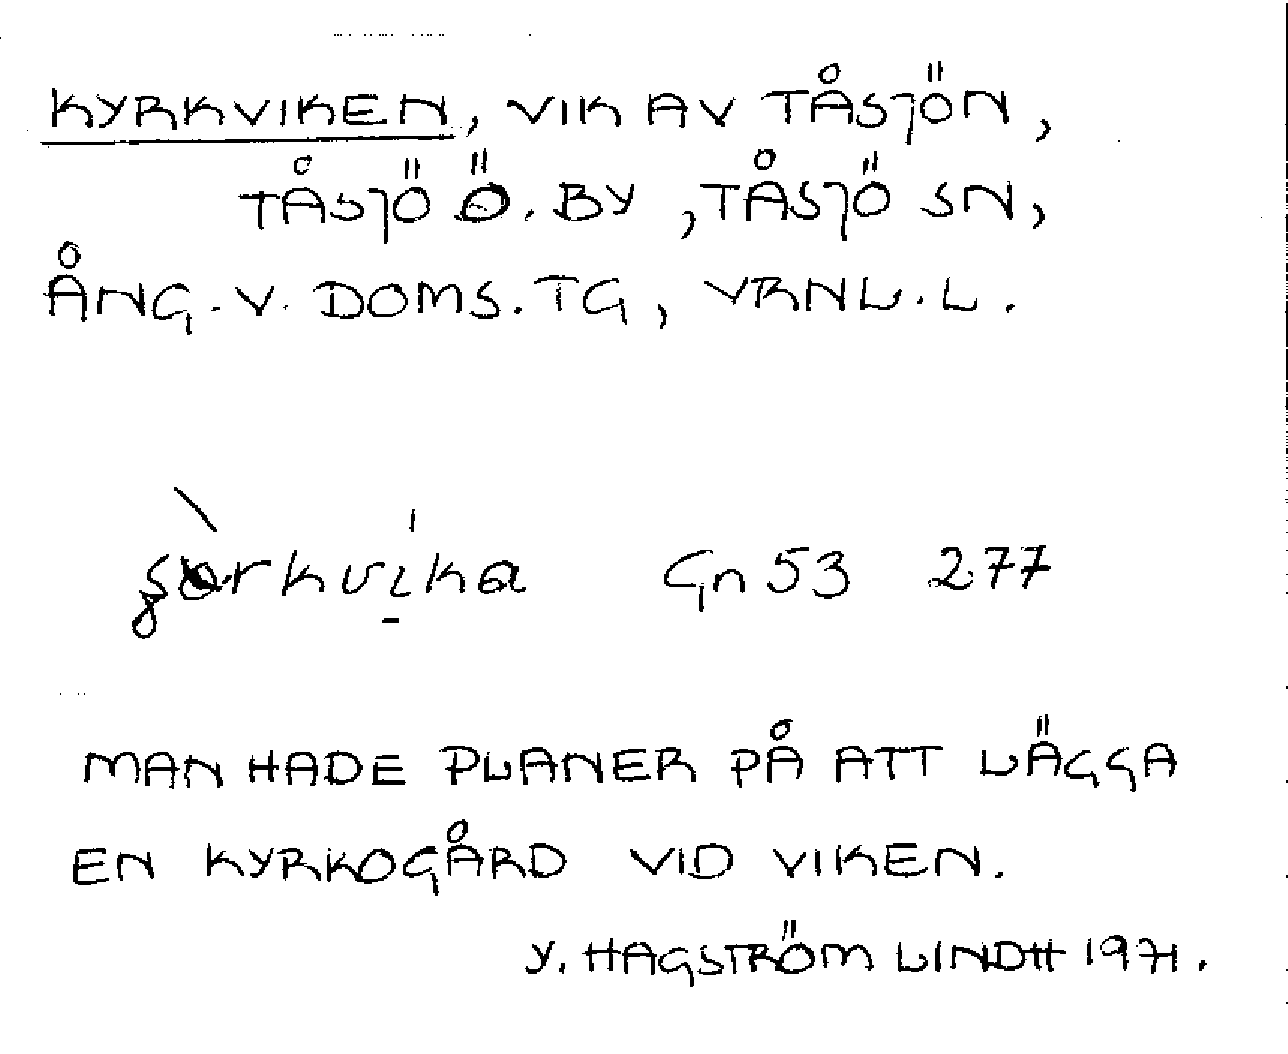 KYRKVIKEN, VIK AV TÅSJÖN,
TÅSJÖ Ö. BY, TÅSJÖ SN,
ÅNG. V. DOMS. TG, VRNL. L.
Gn 53 277
MAN HADE PLANER PÅ ATT LÄGGA
EN KYRKOGÅRD VID VIKEN.
Y. HAGSTRÖM LINDH 1971.